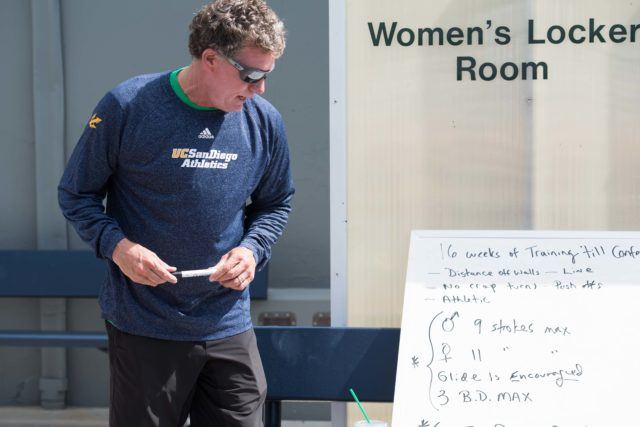 Women's Locker
Room
adidas
UC San Diego
Athletics
16 weeks of Training till Confe
— Distance off walls — Line
— No crap turns — Push offs
— Athletic
* ♂ 9 strokes max
♀ 11 " "
Glide Is Encouraged
3 B.D. MAX